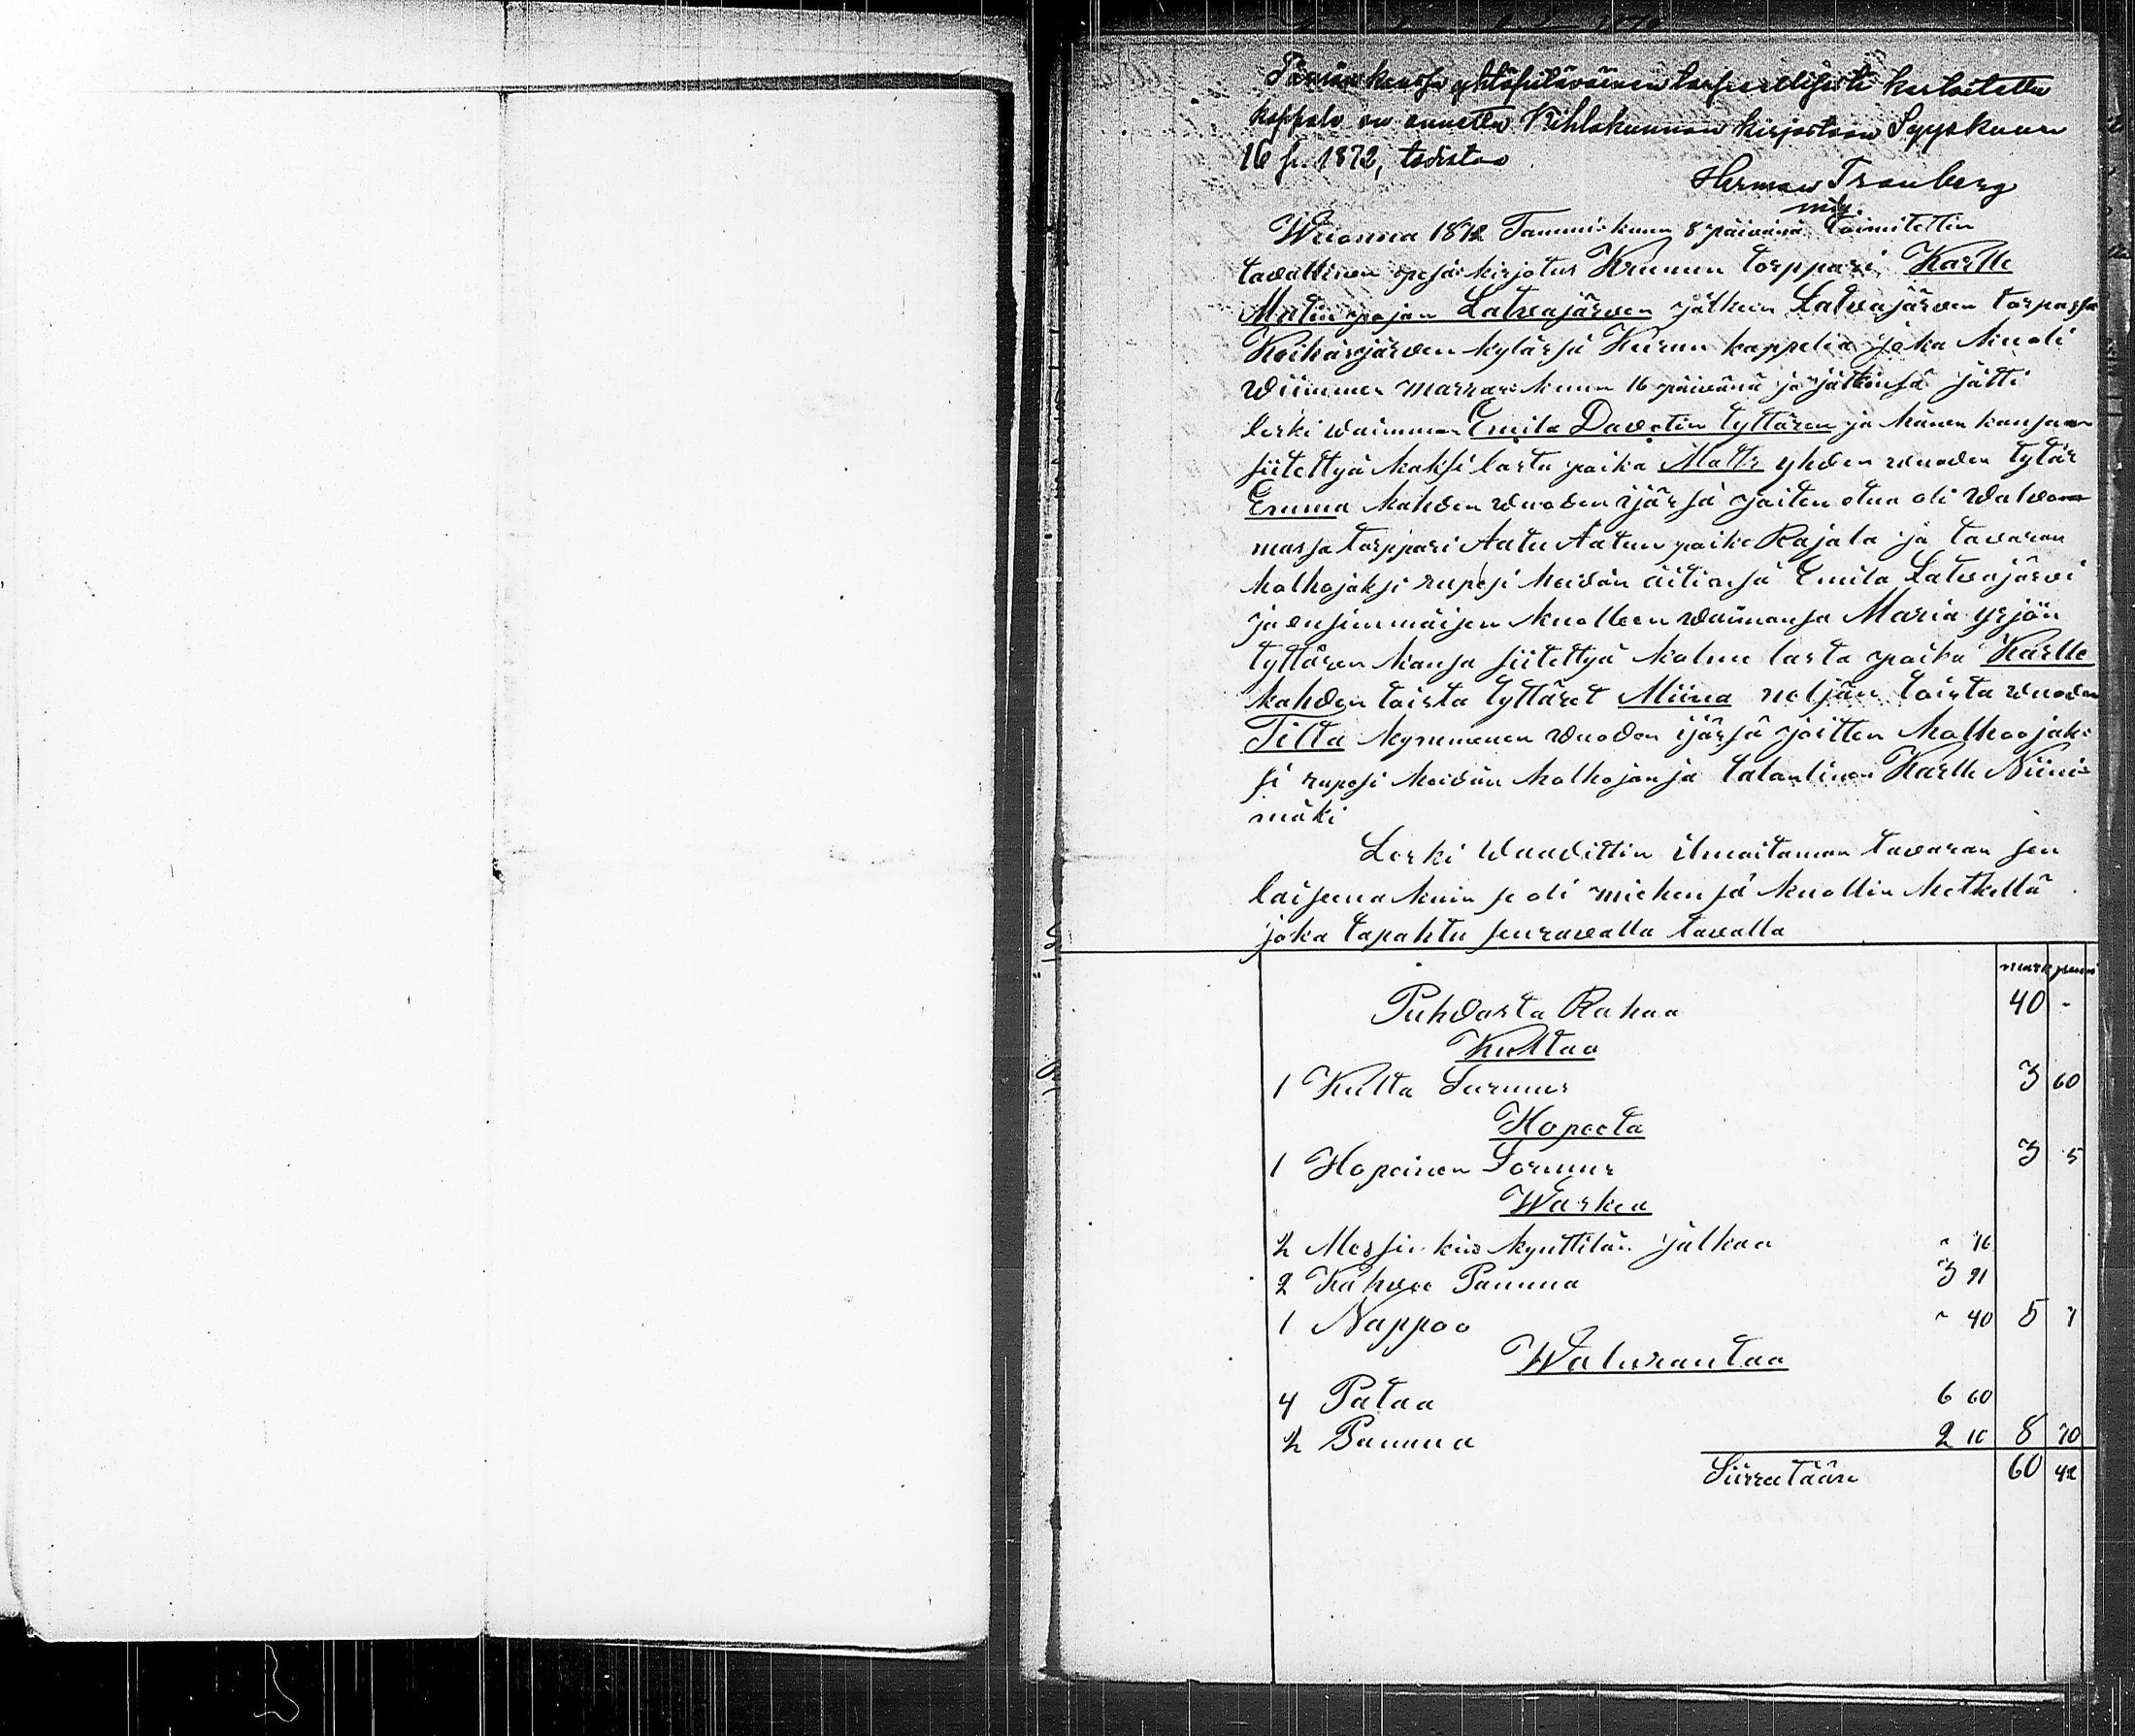 Tämän kanssa yhtäpitäväinen karttoitettu
kappale on annettu Kihlakunnan kirjastoon Syyskuun
16 p. 1872, todistaa
Herman Tranberg
Wuonna 1872 Tammikuun 8 päivänä toimitettin
tavallinen pesänkirjotus Kruunun torppari Kaslle
Matinpojan Latvajärven jälkeen Latvajärven torpassa
Keihäsjärven kylässä Keurun kappelia joka kuoli
wiimmen marraskuun 16 päivänä ja jälkeensä jätti
leski waimmon Emila Davetin tyttären ja hänen kansaan
siitettyä kaksi lasta poika Matts yhden wuoden tytär
Emma kahden wuoden ijässä joiten etua oli walwo-
massa torppari Aatu Aatun poika Rajala ja tavaran
holhojaksi rupesi heidän äitinsä Emila Latvajärvi
ja ensimmäisen kuolleen waimonsa Maria yrjön
tyttären kansa siitettyä kolme lasta poika Kaslle
kahden toista tyttäret Miina neljän toista wuoden
Tilta kymmenen wuoden ijässä joitten holhoojak-
si rupesi heidän holhojansa talonlinen Kalle Niini-
mäki
Leski waadittin ilmoitaman tavaran sen
laisena kuin se oli miehensä kuollin hetkellä
joka tapahtu seuravalla tavalla
mark penni
Puhdasta Rahaa 40 -
Kultaa
1 Kulta Sormus 3 60
Hopeeta
1 Hopeinen Sormus 3 5
Waskea
2 Messinkiä kynttilän jalkaa " 76
2 Kahvee Pannua 3 91
1 Nappoo " 40 5 7
Walurautaa
4 Pataa 6 60
2 Pannua 2 10 8 70
Siirretään 60 42